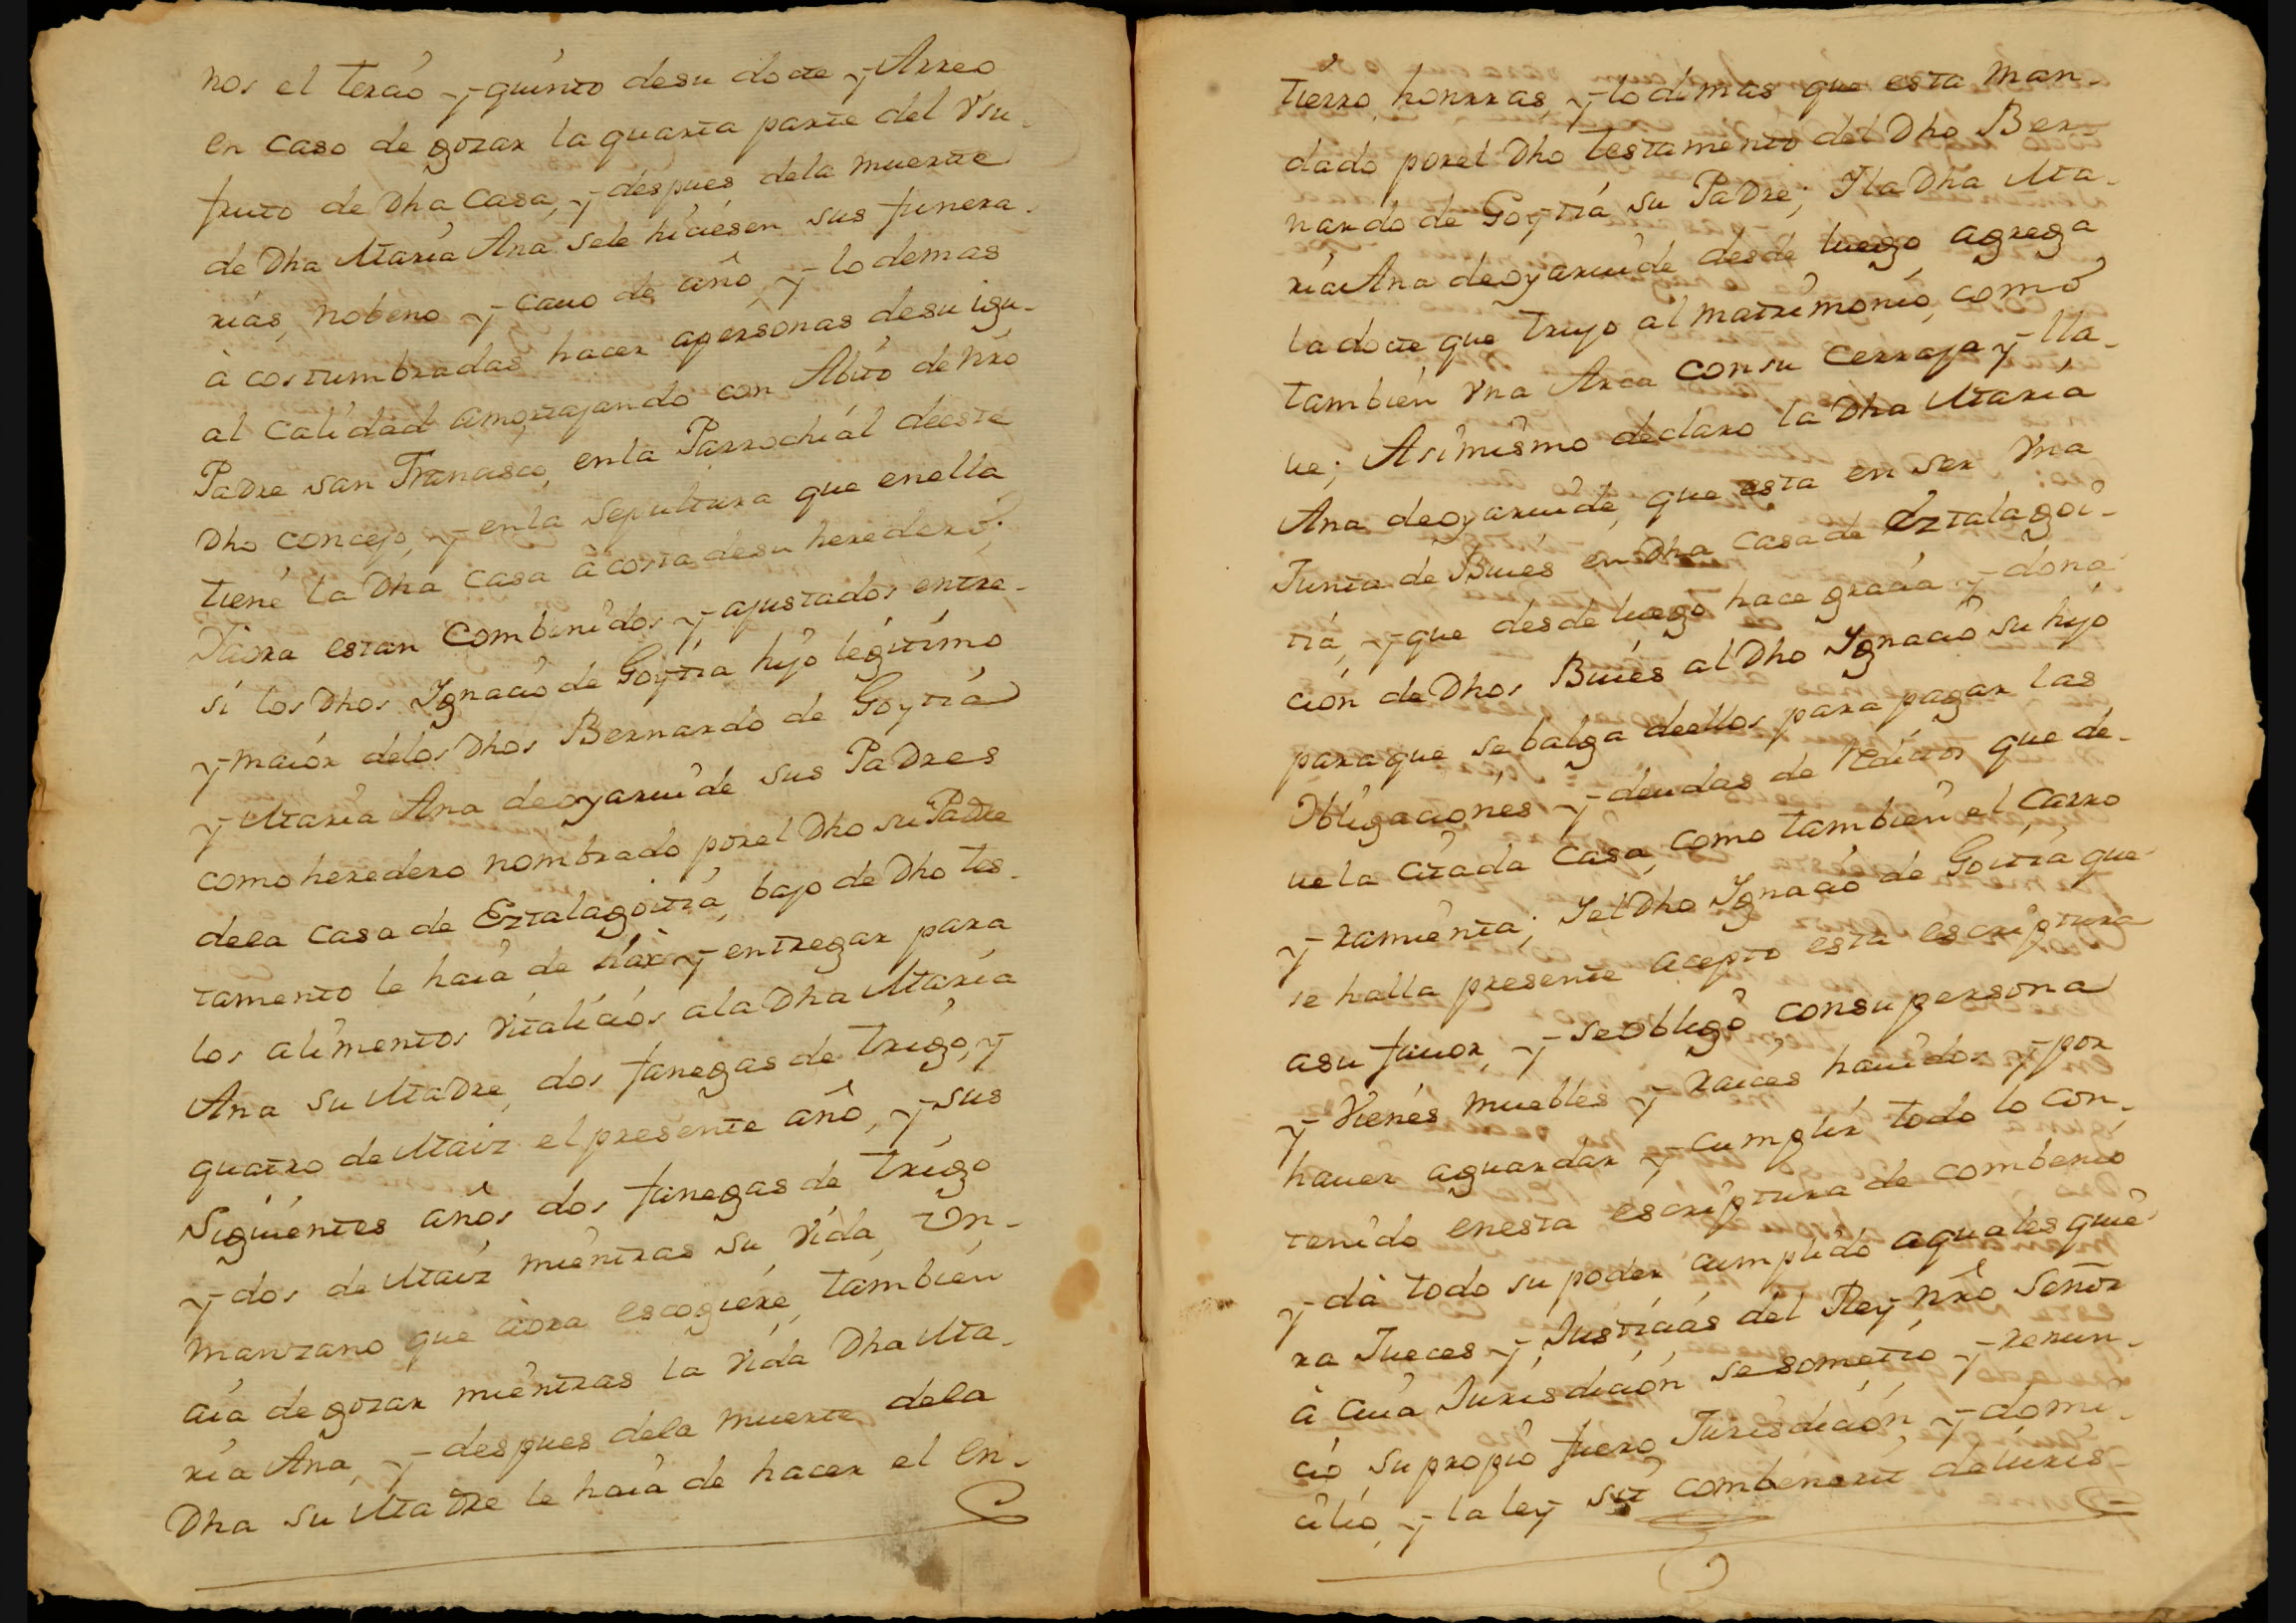 nos el tercio y quinto desu docte y Arreo
en caso de gozar la quarta parte del Vsu-
fruto de Dha Casa, y despues dela muerte
de Dha Maria Ana sele hiciesen sus funera-
rias, nobeno y cauo de año, y lo demas
à costumbradas hacer apersonas desu igu-
al calidad amortajando con Abito de nro
Padre san Francisco, enla Parrochial deeste
Dho concejo, y enla sepultura que enella
tiene la Dha casa à costa desu heredero.
Yaora estan combenidos y ajustados entre-
si los Dhos Ignacio de Goytia hijo legitimo
y maior delos Dhos Bernardo de Goytia
y Maria Ana deoyaruide sus Padres
como heredero nombrado porel Dho su Padre
dela casa de Eztalagoitia, bajo de Dho tes-
tamento le haia de dar y entregar para
los alimentos vitalicios ala Dha Maria
Ana su Madre, dos fanegas de trigo, y
quatro de Maiz el presente año, y sus
Siguientes años dos fanegas de trigo
y dos de Maiz mientras su vida, Un-
manzano que aora escogiere, tambien
aia degozar mientras la vida Dha Ma-
ria Ana, y despues dela muerte dela
Dha su Madre le haia de hacer el en-
tierro, honrras, y lodemas que esta man-
dado porel Dho testamento del Dho Ber-
nardo de Goytia su Padre; Y la Dha Ma-
ria Ana deoyaruide desde luego agrega
la docte que trujo al matrimonio, como
tambien Vna Arca consu cerraja y lla-
ue; Asimismo declaro la Dha Maria
Ana deoyaruide, que esta en ser Vna
Junta de Bues en Dha casa de Eztalagoi-
tia, y que desde luego hace gracia y dona
cion de Dhos Bues al Dho Ignacio su hijo
para que se balga deellos para pagar las
Obligaciones y deudas de reditos que de-
ue la citada casa, como tambien el Carro
y ramienta; Y el Dho Ignacio de Goitia que
se halla presente acepto esta escriptura
asu fauor, y seobligo consu persona
y Vienes muebles y raices hauidos y por
hauer aguardar y cumplir todo lo con-
tenido enesta escriptura de combenio
y da todo su poder cumplido aquales quie
ra Jueces y Justicias del Rey nro Señor
à cuia Jurisdicion sesometio y renun-
cio su propio fuero Jurisdicion, y domi-
cilio, y la ley sit combenerit deiuris-